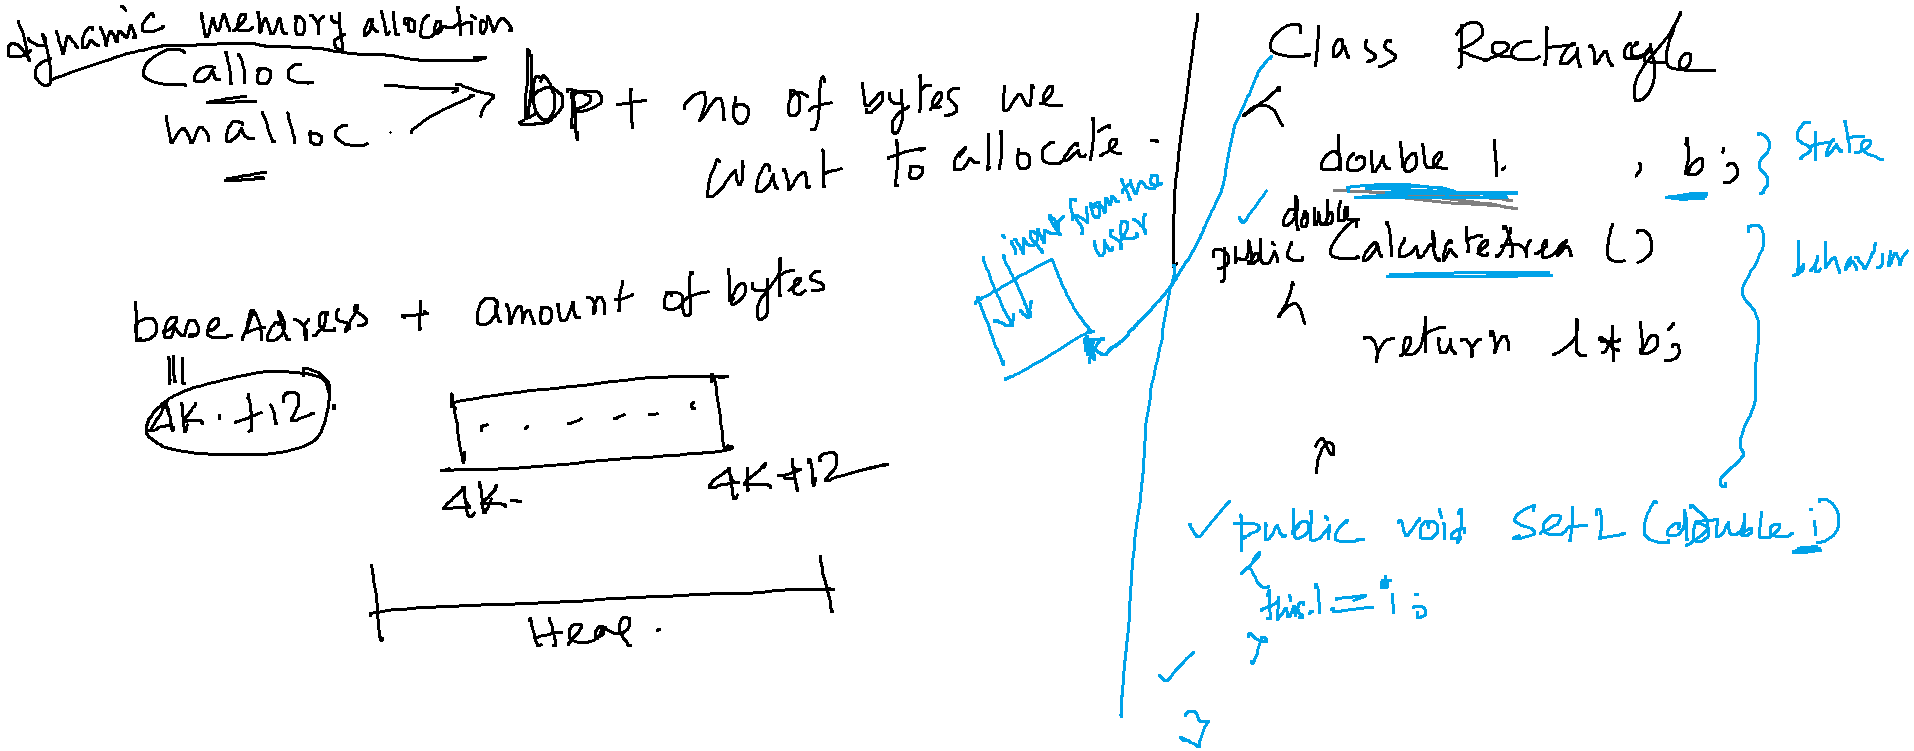 dynamic memory allocation
Calloc
malloc
bp + no of bytes we
want to allocate.
base Adress + amount of bytes
4K. +12.
4K-
4K+12
Heap.
input from the
user
Class Rectangle
double l , b; } State
public double CalculateArea () behavior
{
return l * b;
}
public void SetL (double i)
{
this.l = i;
}
}